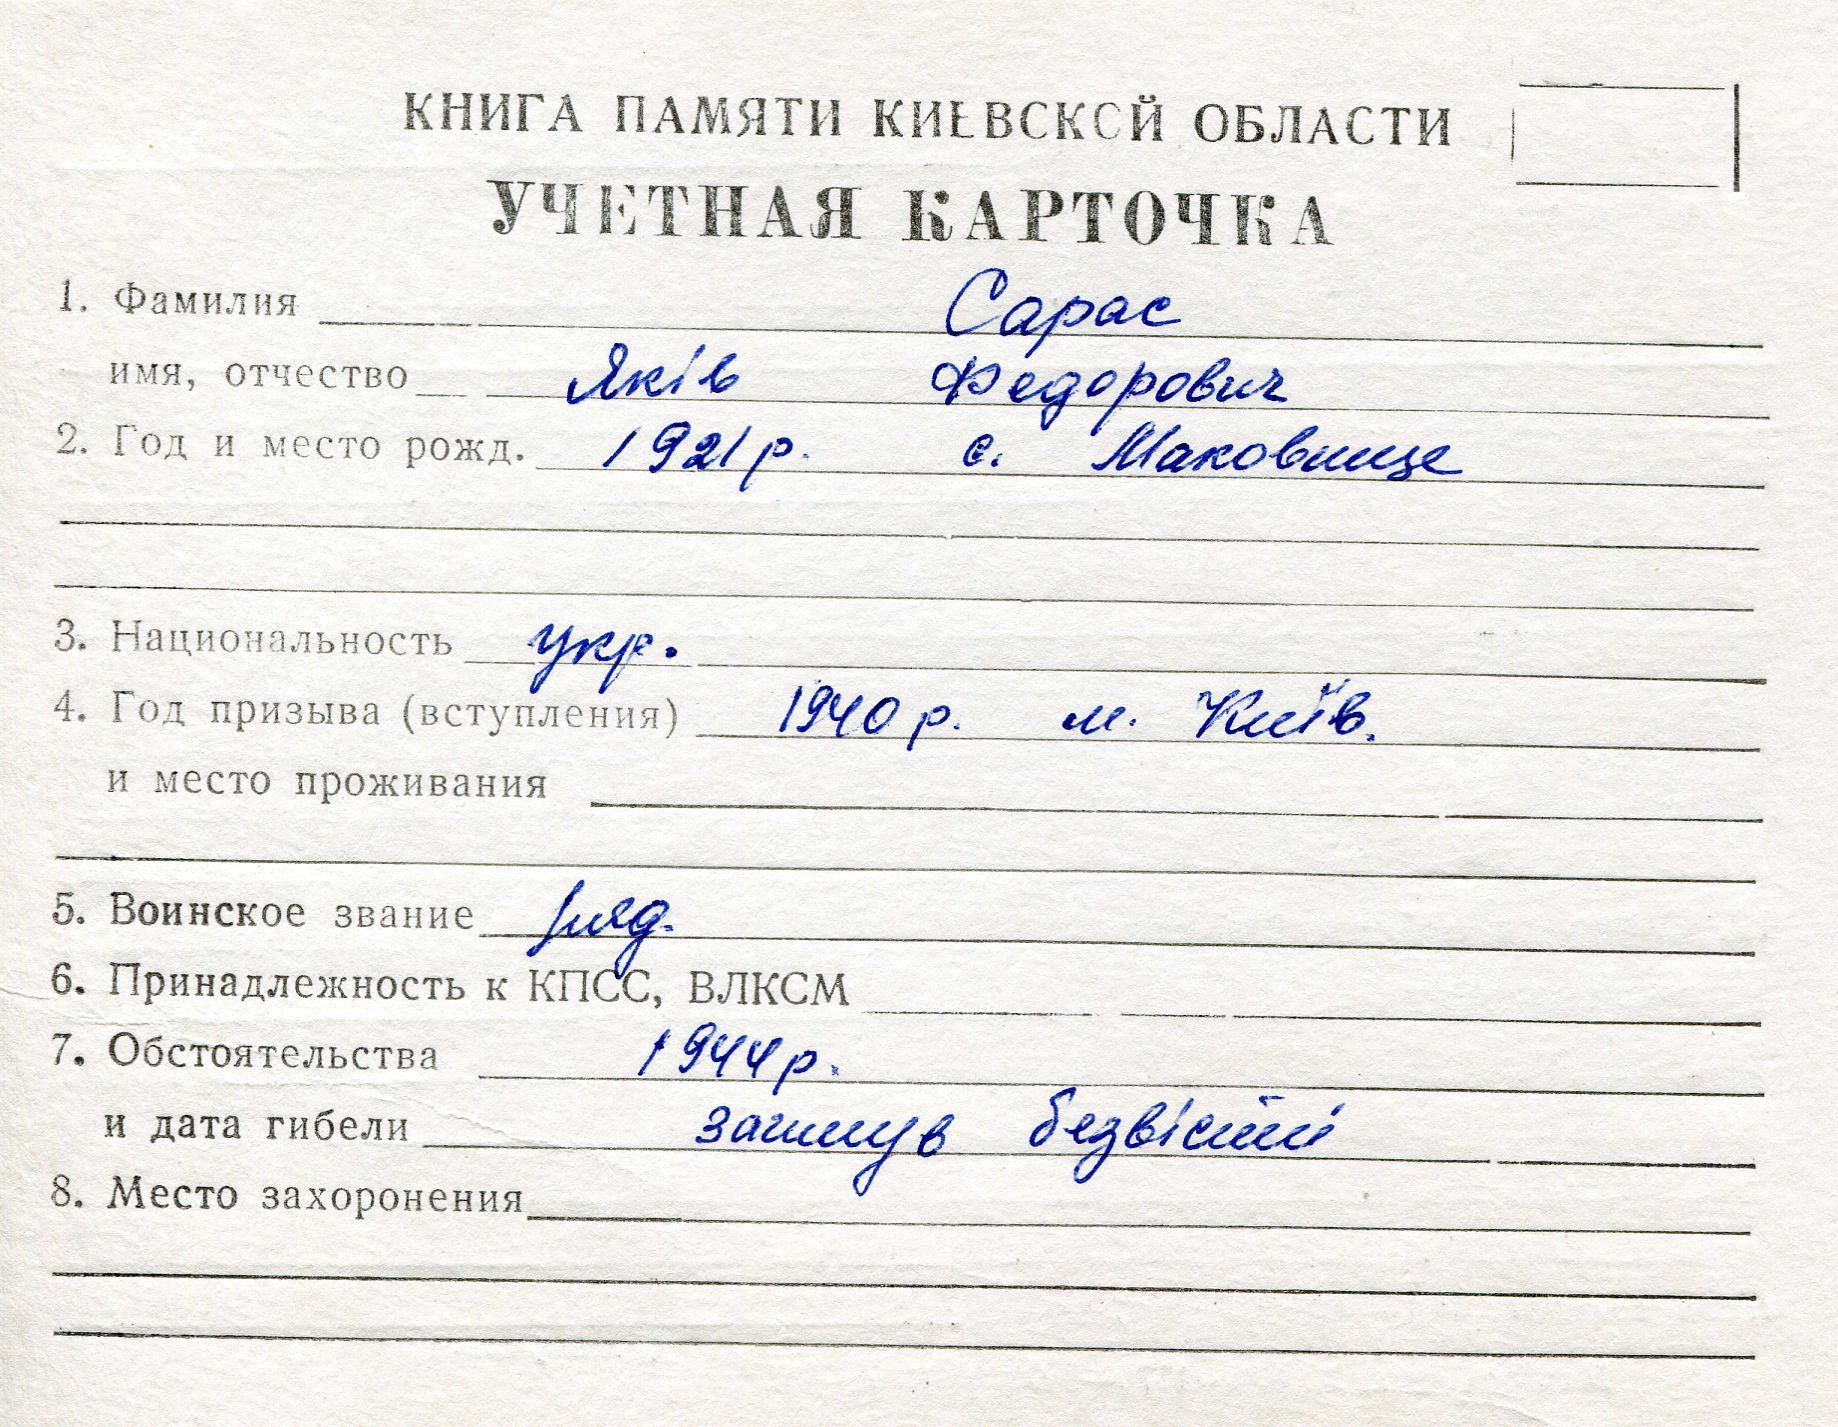 КНИГА ПАМЯТИ КИЕВСКОЙ ОБЛАСТИ
УЧЕТНАЯ КАРТОЧКА
1. Фамилия Сарас
имя, отчество Яків Федорович
2. Год и место рожд. 1921 р. с. Маковище
3. Национальность укр.
4. Год призыва (вступления) 1940 р. м. Київ.
и место проживания
5. Воинское звание ряд.
6. Принадлежность к КПСС, ВЛКСМ
7. Обстоятельства 1944 р.
и дата гибели загинув безвісті
8. Место захоронения